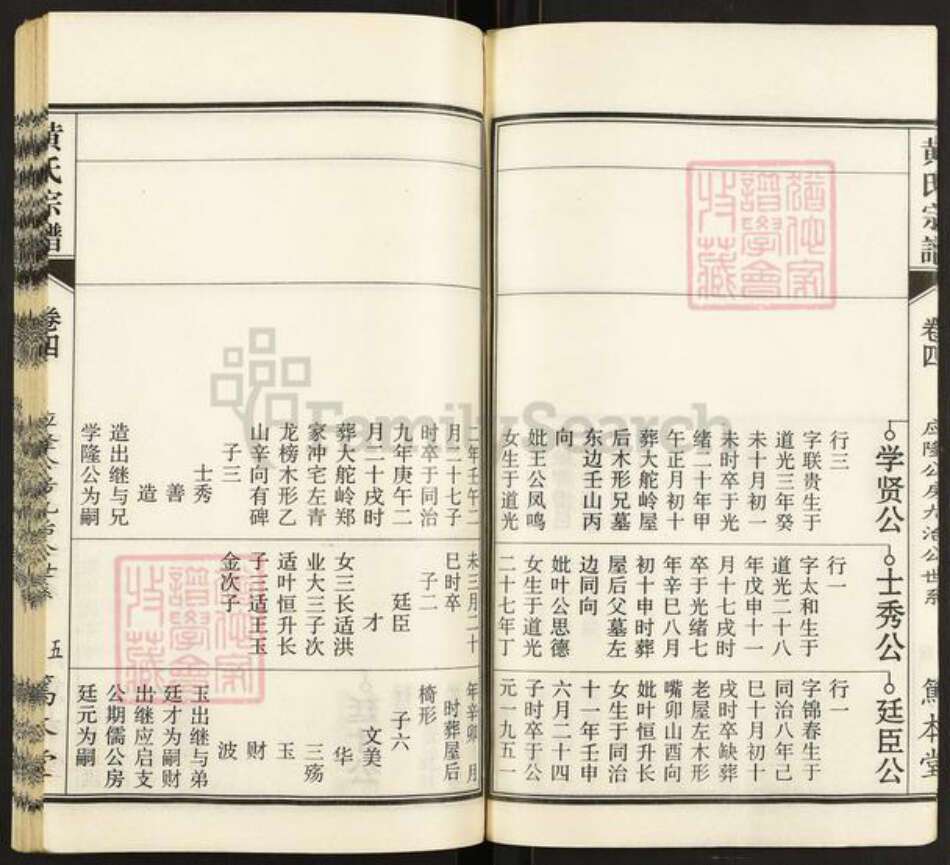 黄氏宗谱
卷四
应隆公房九治公世系
笃本堂
学贤公
行三
字联贵生于
道光三年癸
未十月初一
未时卒于光
绪二十年甲
午正月初十
葬大舵岭屋
后木形兄墓
东边壬山丙
向
妣王公凤鸣
女生于道光
二年壬午二
月二十七子
时卒于同治
九年庚午二
月二十戌时
葬大舵岭郑
家冲宅左青
龙榜木形乙
山辛向有碑
子三
士秀
善
造
造出继与兄
学隆公为嗣
士秀公
行一
字太和生于
道光二十八
年戊申十一
月十七戌时
卒于光绪七
年辛巳八月
初十申时葬
屋后父墓左
边同向
妣叶公思德
女生于道光
二十七年丁
未三月二十
巳时卒
子二
廷臣
才
女三长适洪
业大三子次
适叶恒升长
子三适王玉
金次子
廷臣公
行一
字锦春生于
同治八年己
巳十月初十
戌时卒缺葬
老屋左木形
嘴卯山酉向
妣叶恒升长
女生于同治
十一年壬申
六月二十四
子时卒于公
元一九五一
年辛卯 月
时葬屋后
椅形
子六
文美
华
三殇
玉
财
波
玉出继与弟
廷才为嗣财
出继应启支
公期儒公房
廷元为嗣
黄氏宗谱
卷四
五
笃本堂
犹他家谱学会收藏
犹他家谱学会收藏
FamilySearch